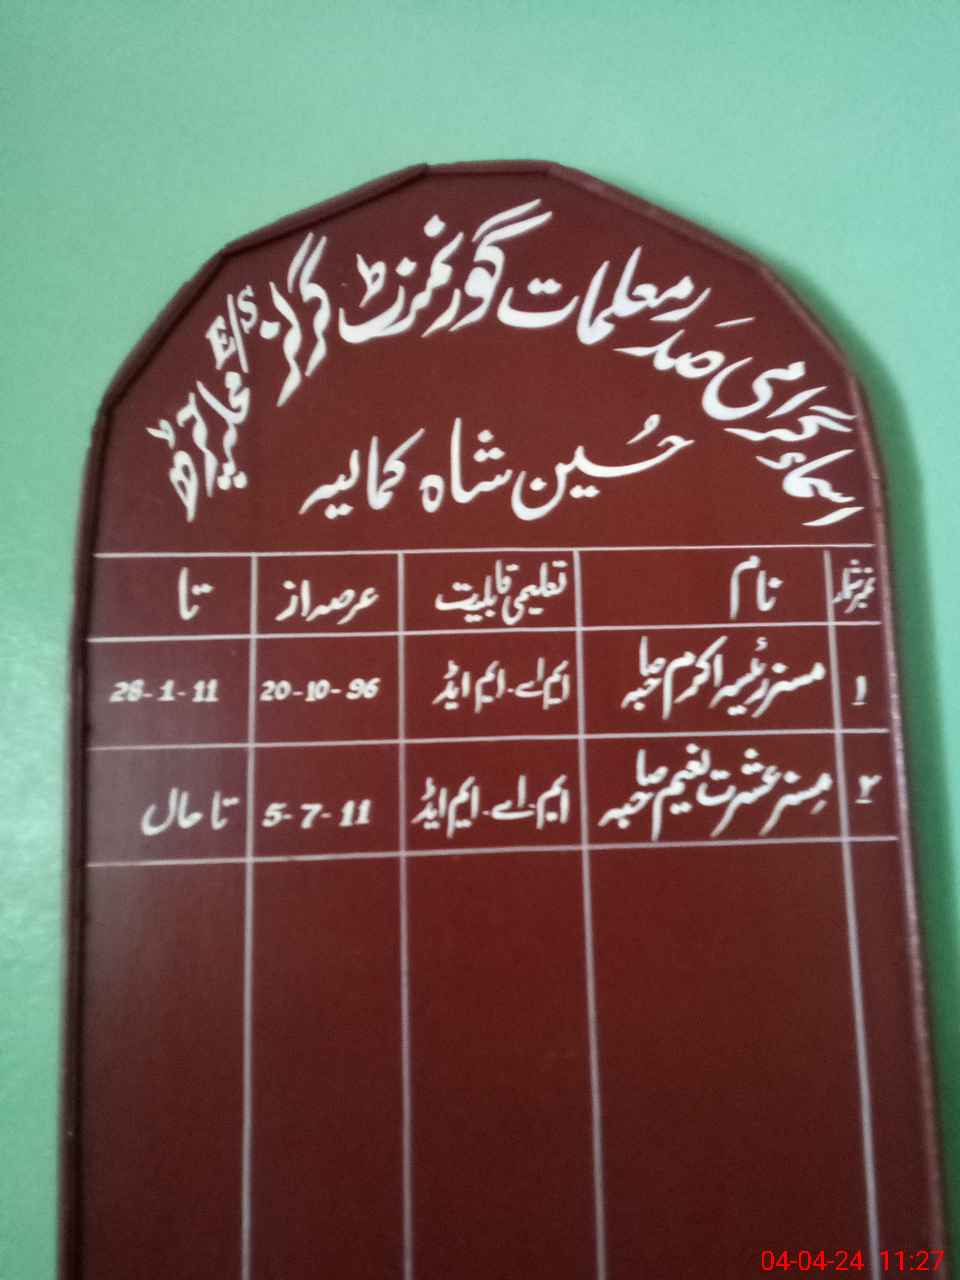 اسمائے گرامی صدر معلمات گورنمنٹ گرلز E/S محلہ
حُسین شاہ کمالیہ
نمبر شمار نام تعلیمی قابلیت عرصہ از تا
۱ مسز رئیسہ اکرم صاحبہ ایم اے۔ ایم ایڈ 20-10-96 28-1-11
۲ مسز عشرت نعیم صاحبہ ایم۔اے۔ ایم ایڈ 5-7-11 تا حال
04-04-24 11:27